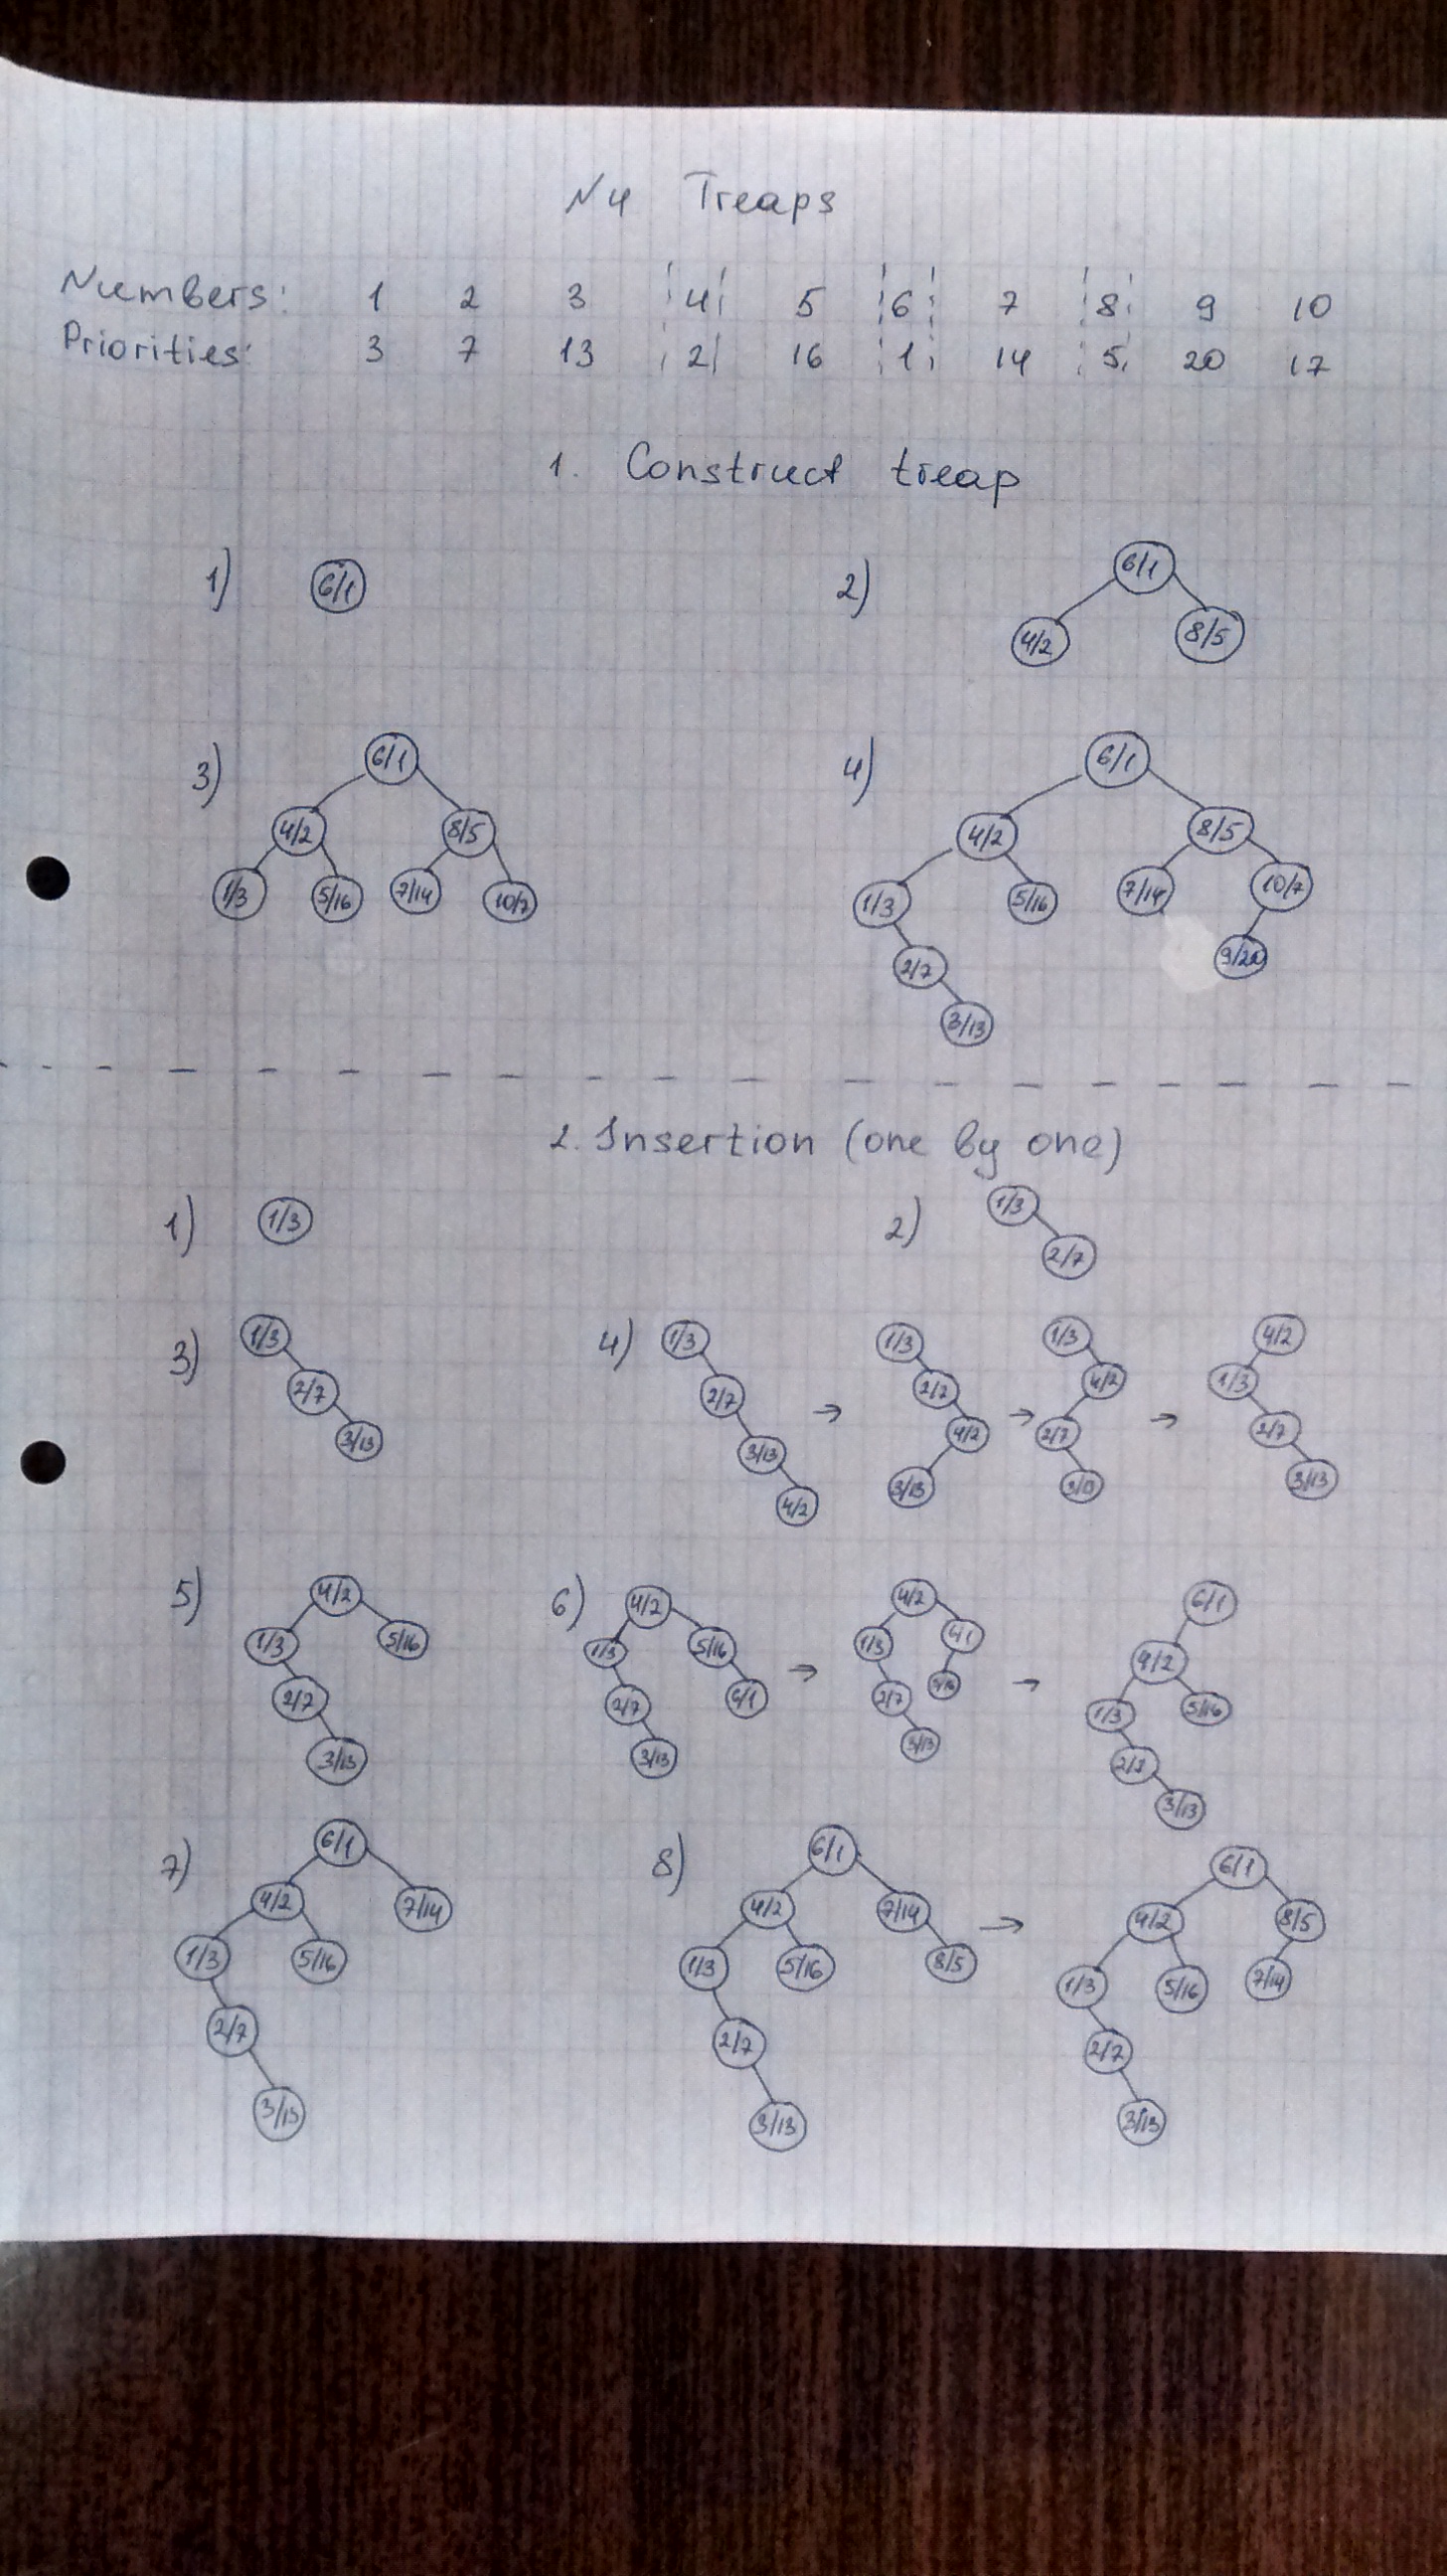 N4 Treaps
Numbers: 1 2 3 4 5 6 7 8 9 10
Priorities: 3 7 13 2 16 1 14 5 20 17
1. Construct treap
1) 6/1
2) 6/1
4/2 8/5
3) 6/1
4/2 8/5
1/3 5/16 7/14 10/7
4) 6/1
4/2 8/5
1/3 5/16 7/14 10/7
2/7 9/20
3/13
2. Insertion (one by one)
1) 1/3
2) 1/3
2/7
3) 1/3
2/7
3/13
4) 1/3 1/3 1/3 4/2
2/7 → 2/7 → 4/2 → 1/3
3/13 4/2 2/7 2/7
4/2 3/13 3/13 3/13
5) 4/2
1/3 5/16
2/7
3/13
6) 4/2 4/2 6/1
1/3 5/16 → 1/3 6/1 → 4/2
2/7 6/1 2/7 5/16 1/3 5/16
3/13 3/13 2/7
3/13
7) 6/1
4/2 7/14
1/3 5/16
2/7
3/13
8) 6/1 6/1
4/2 7/14 → 4/2 8/5
1/3 5/16 8/5 1/3 5/16 7/14
2/7 2/7
3/13 3/13